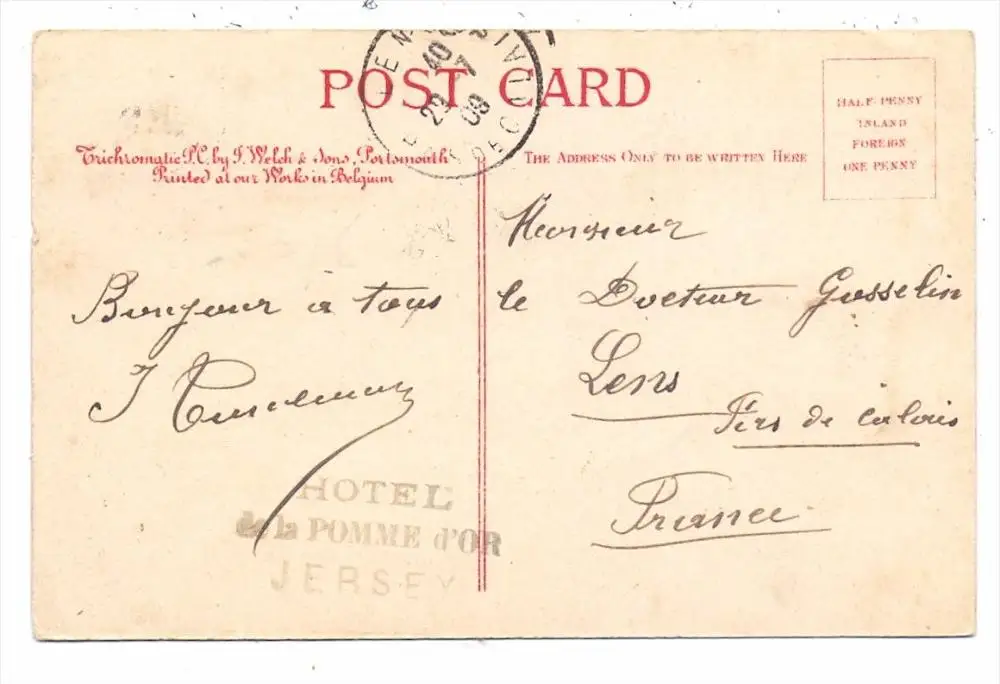 POST CARD
LENS
PAS DE CALAIS
10
29 7
09
HALF PENNY
INLAND
FOREIGN
ONE PENNY
Trichromatic P.C. by J. Welch & Sons, Portsmouth
Printed at our Works in Belgium
THE ADDRESS ONLY TO BE WRITTEN HERE
Bonjour à tous
J
HOTEL
de la POMME d'OR
JERSEY
Monsieur
le Docteur Gosselin
Lens
Pas de Calais
France